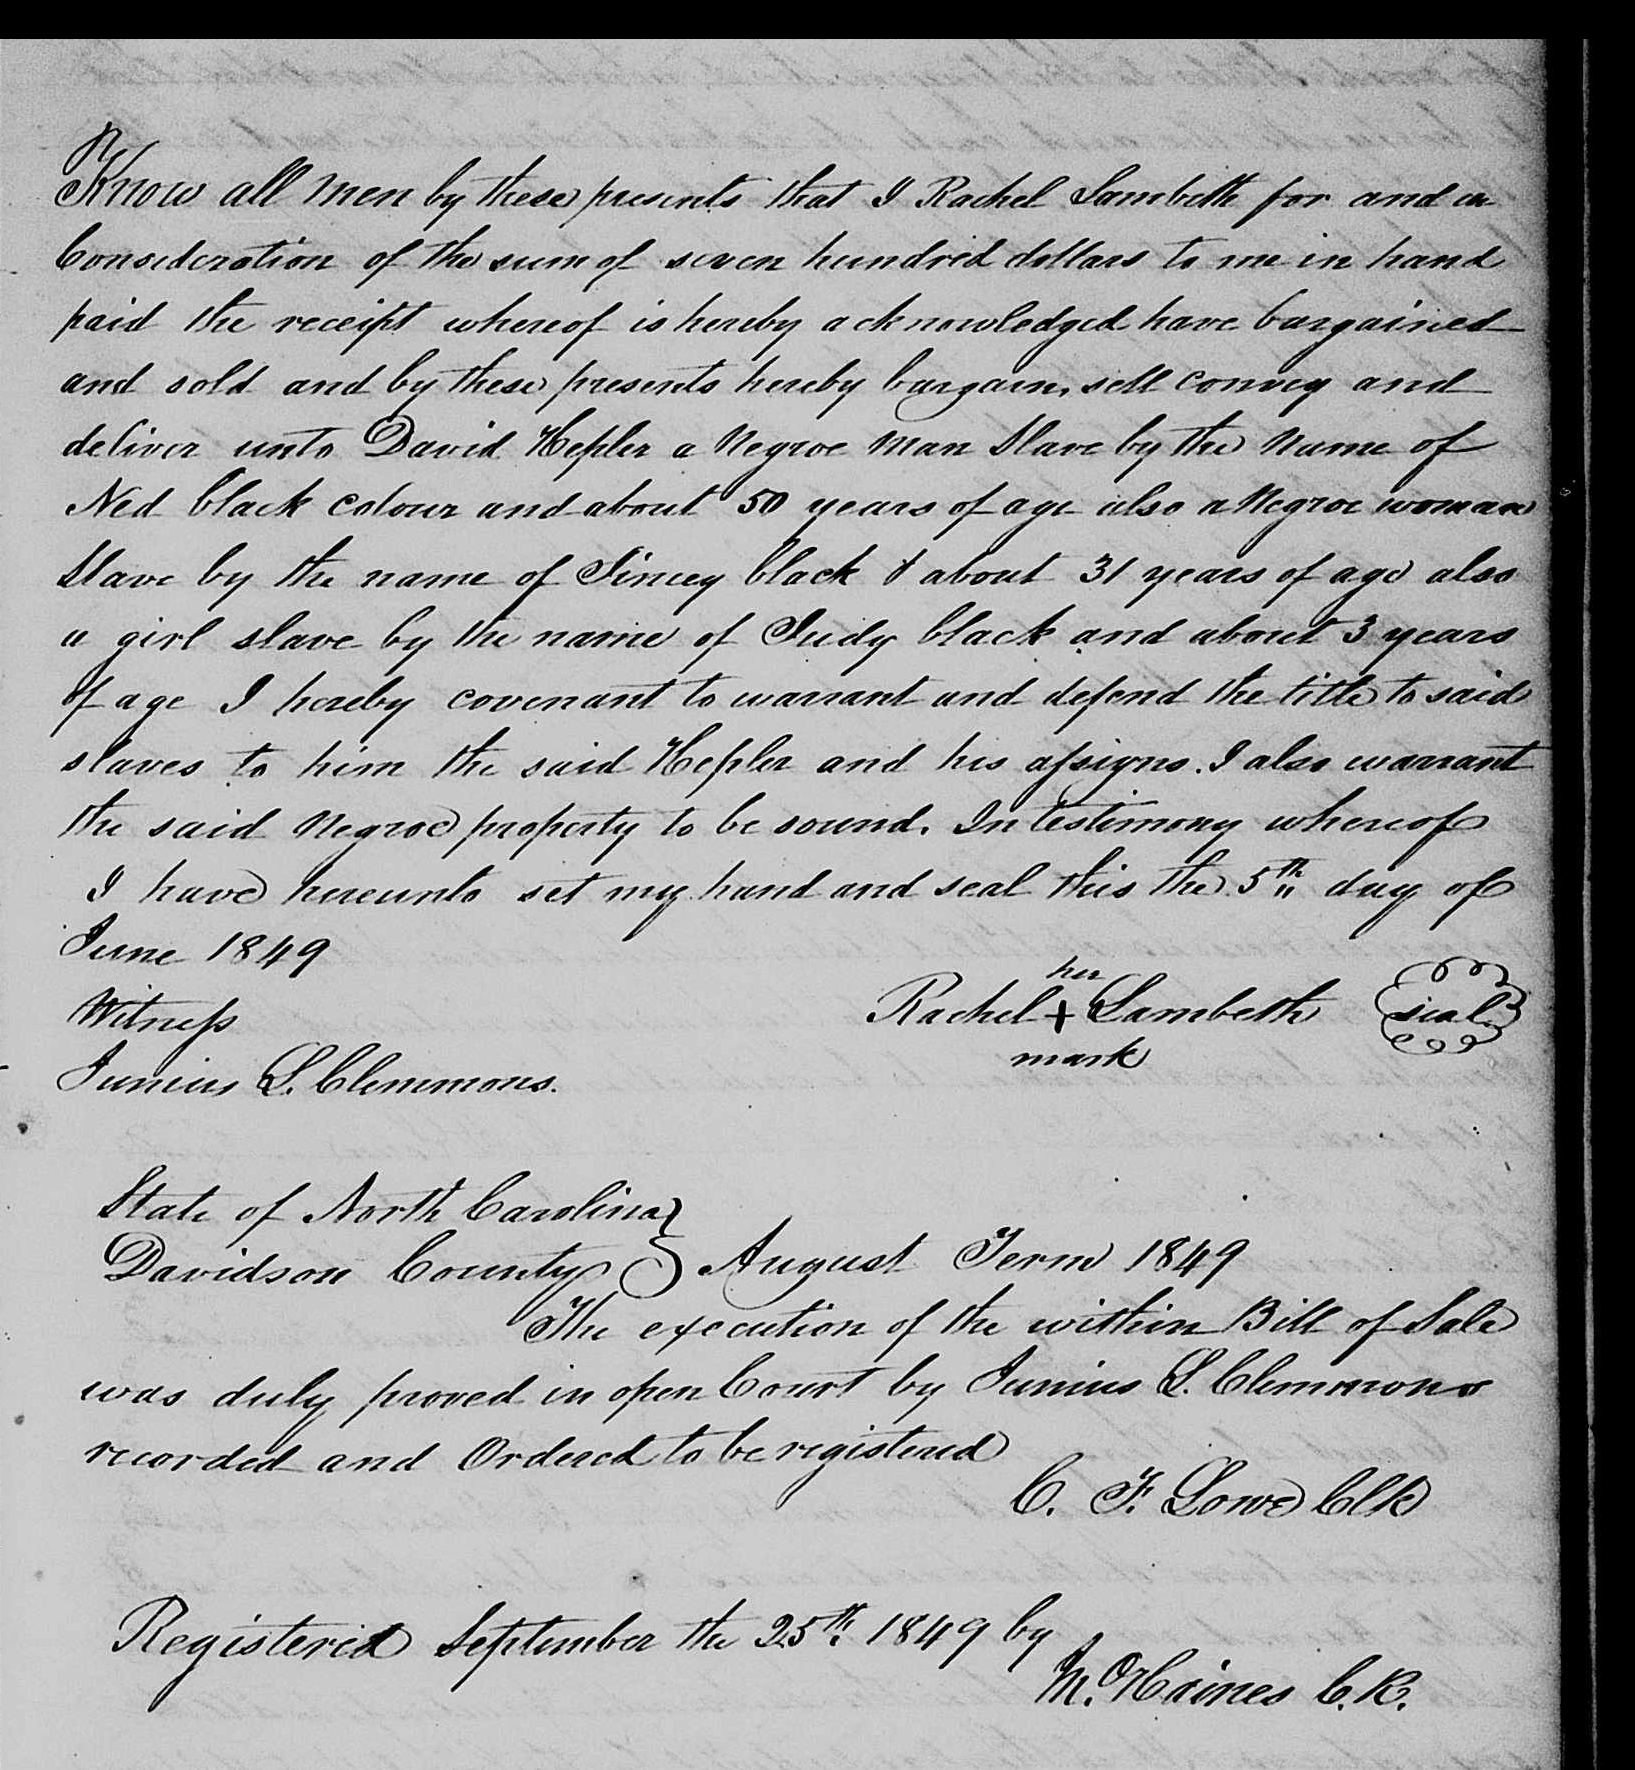 Know all men by these presents that I Rachel Lambeth for and in
Consideration of the sum of seven hundred dollars to me in hand
paid the receipt whereof is hereby acknowledged have bargained
and sold and by these presents hereby bargain, sell convey and
deliver unto David Hepler a Negroe man Slave by the Name of
Ned black colour and about 50 years of age also a Negroe woman
Slave by the name of Jincey black & about 31 years of age also
a girl slave by the name of Judy black and about 3 years
of age I hereby covenant to warrant and defend the title to said
slaves to him the said Hepler and his assigns. I also warrant
the said Negroe property to be sound. In testimony whereof
I have hereunto set my hand and seal this the 5th day of
June 1849
her
Witness Rachel + Lambeth seal
mark
Junius L. Clemmons.
State of North Carolina }
Davidson County } August Term 1849
The execution of the within Bill of Sale
was duly proved in open Court by Junius L. Clemmons
recorded and Ordered to be registered
C. F. Lowe Clk
Registered September the 25th 1849 by
M. Haines C.R.